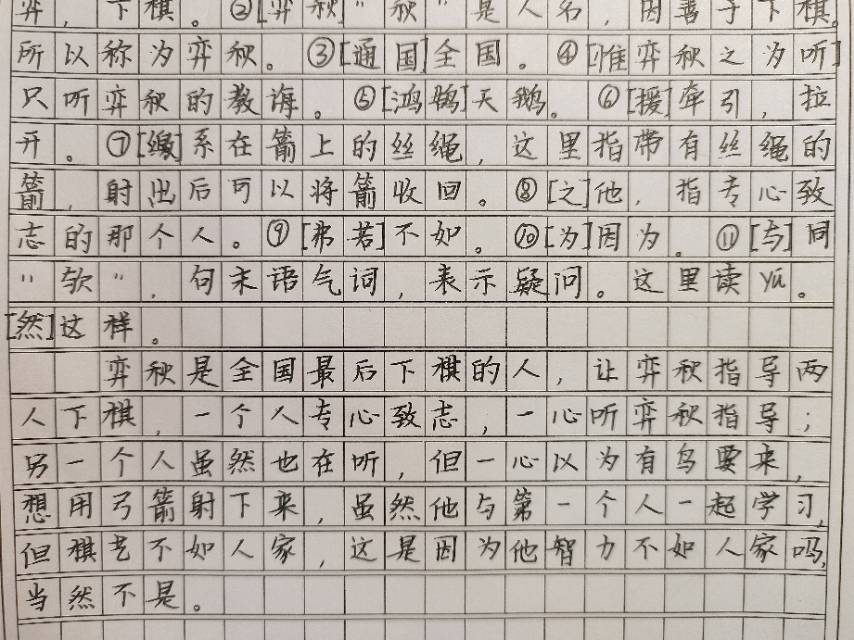 弈，下棋。②[弈秋]“秋”是人名，因善于下棋。
所以称为弈秋。③[通国]全国。④[惟弈秋之为听]
只听弈秋的教诲。⑤[鸿鹄]天鹅。⑥[援]牵引，拉
开。⑦[缴]系在箭上的丝绳，这里指带有丝绳的
箭，射出后可以将箭收回。⑧[之]他，指专心致
志的那个人。⑨[弗若]不如。⑩[为]因为。⑪[与]同
“欤”，句末语气词，表示疑问。这里读yú。
[然]这样。
弈秋是全国最后下棋的人，让弈秋指导两
人下棋，一个人专心致志，一心听弈秋指导；
另一个人虽然也在听，但一心以为有鸟要来，
想用弓箭射下来，虽然他与第一个人一起学习，
但棋艺不如人家，这是因为他智力不如人家吗，
当然不是。